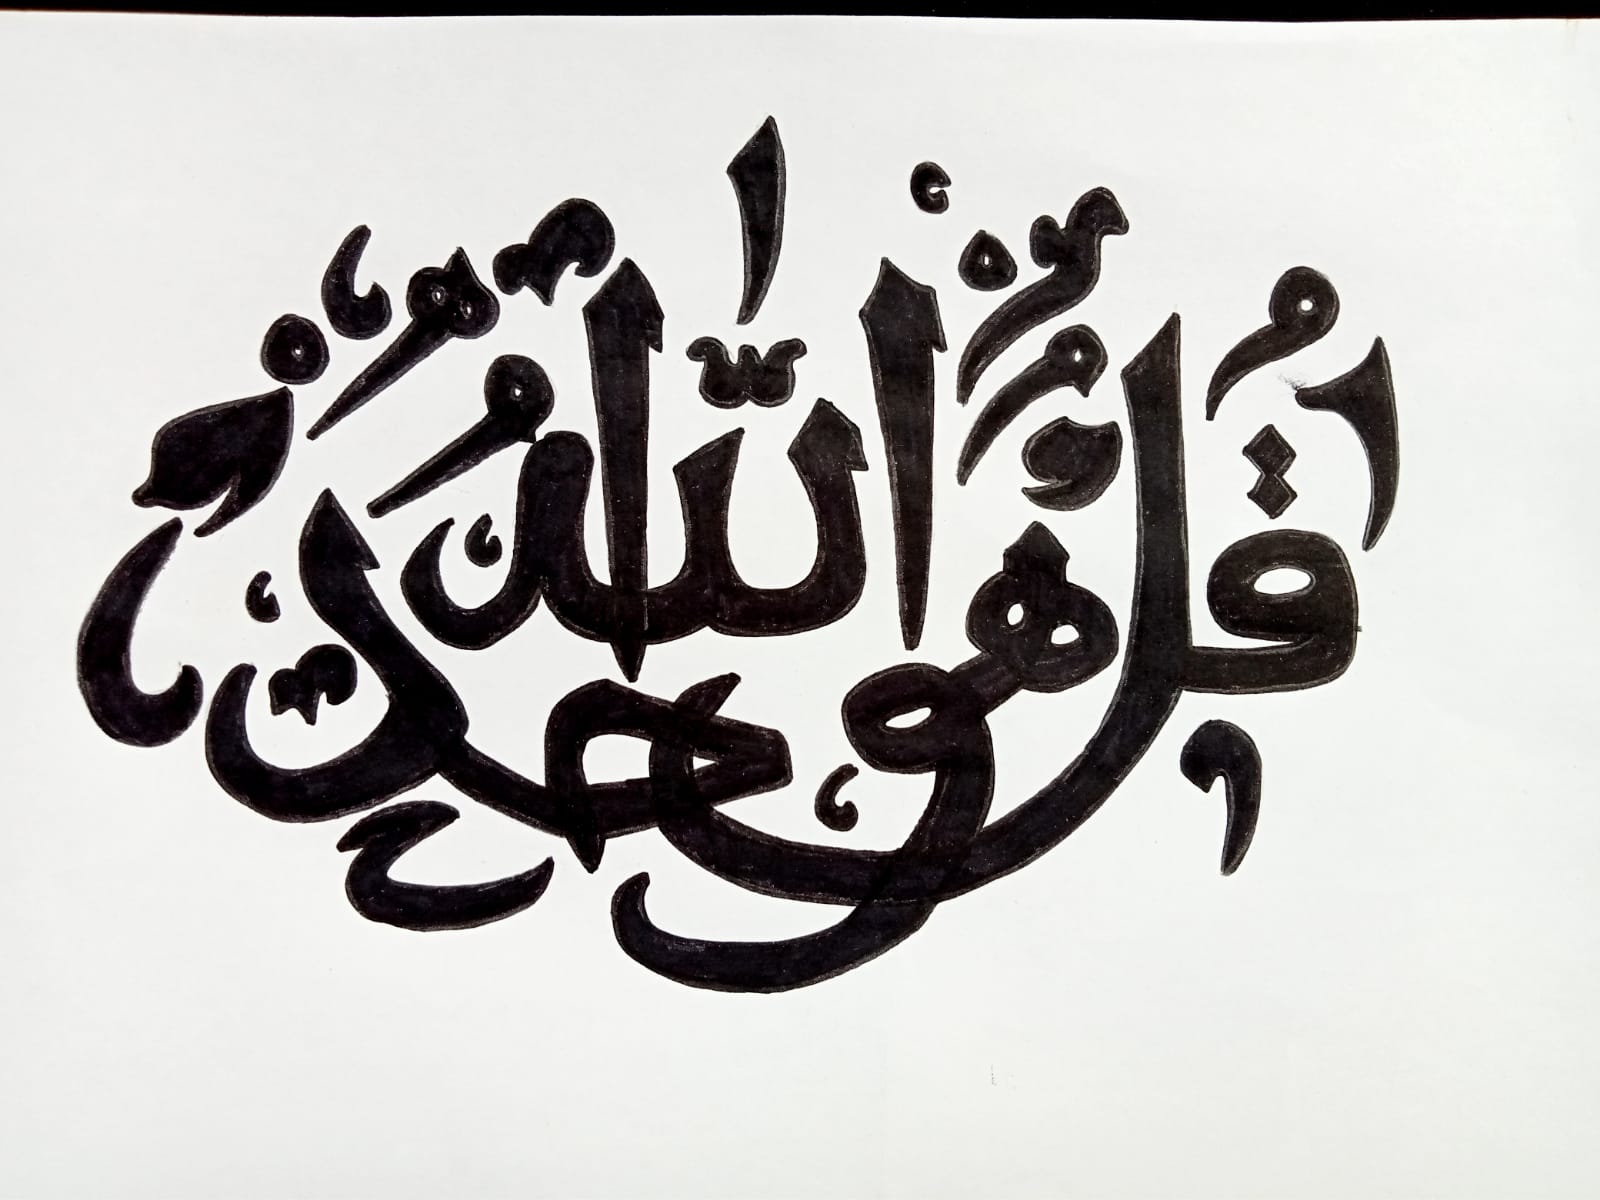 قُلْ هُوَ اللّٰهُ اَحَدٌ